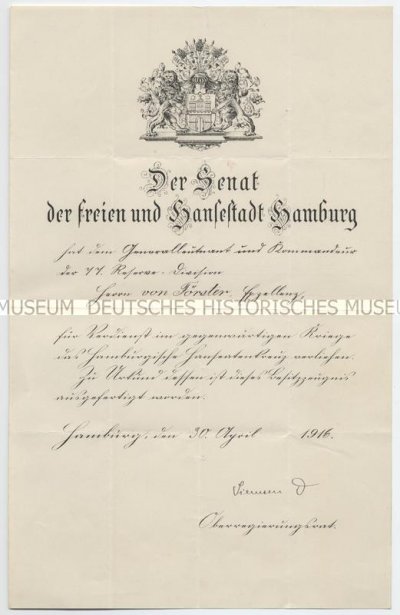 Der Senat
der freien und Hansestadt Hamburg
hat dem Generalleutnant und Kommandeur
der 77. Reserve-Division
Herrn von Förster Exzellenz,
MUSEUM DEUTSCHES HISTORISCHES MUSE
für Verdienst im gegenwärtigen Kriege
das Hamburgische Hanseatenkreuz verliehen.
Zu Urkund dessen ist dieses Besitzzeugnis
ausgefertigt worden.
Hamburg, den 30. April 1916.
Oberregierungsrat.